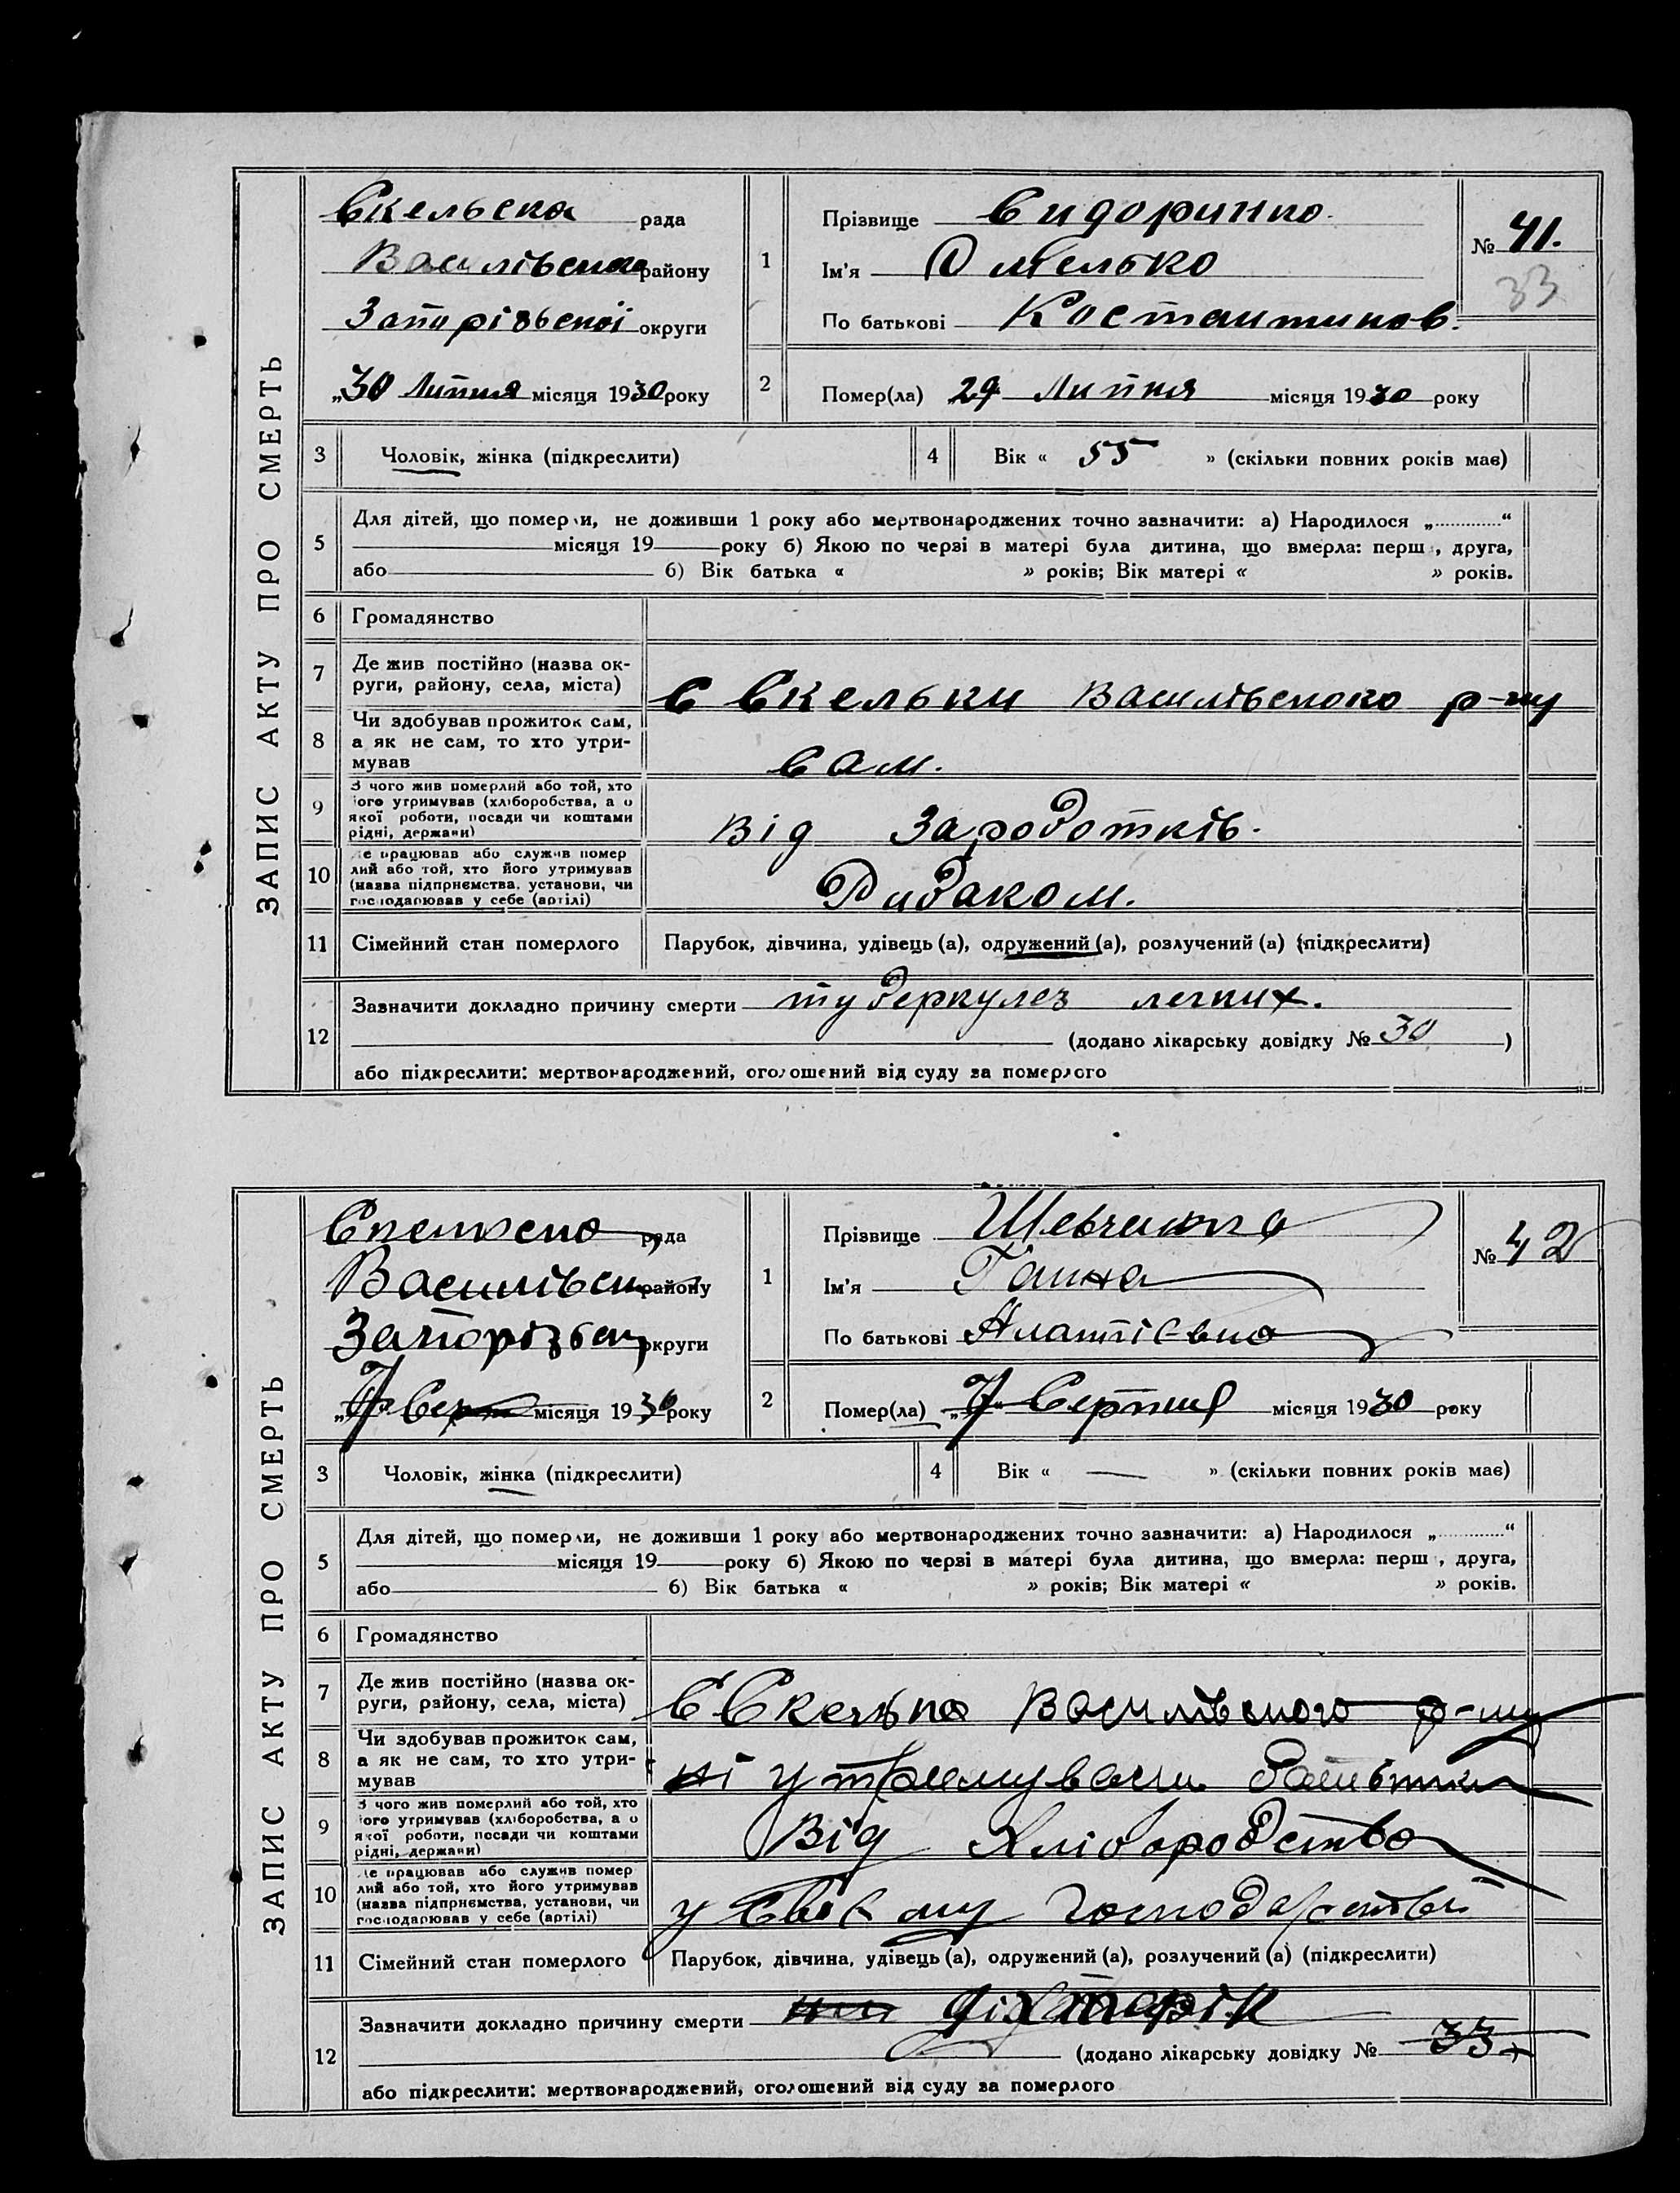 ЗАПИС АКТУ ПРО СМЕРТЬ
Скельська рада
Василівська району
Запорізської округи
„30 Липня місяця 1930 року
1
Прізвище Сидоринко.
Ім'я Омелько
По батькові Костантинов.
№ 41.
33
2
Помер(ла) 29 Липня місяця 1930 року
3 Чоловік, жінка (підкреслити)
4 Вік « 55 » (скільки повних років має)
5 Для дітей, що померли, не доживши 1 року або мертвонароджених точно зазначити: а) Народилося „ “
місяця 19 року б) Якою по черзі в матері була дитина, що вмерла: перш , друга,
або б) Вік батька « » років; Вік матері « » років.
6 Громадянство
7 Де жив постійно (назва ок-
руги, району, села, міста)
С Скельки Василівского р-ну
8 Чи здобував прожиток сам,
а як не сам, то хто утри-
мував
Сам.
9 З чого жив померлий або той, хто
його утримував (хліборобства, а о
якої роботи, посади чи коштами
рідні, держави)
Від Заробітків.
10 Де працював або служив помер
лий або той, хто його утримував
(назва підприємства, установи, чи
господарював у себе (артілі)
Рибаком.
11 Сімейний стан померлого Парубок, дівчина, удівець (а), одружений (а), розлучений (а) (підкреслити)
12 Зазначити докладно причину смерти туберкулез легких.
(додано лікарську довідку № 30 )
або підкреслити: мертвонароджений, оголошений від суду за померлого
ЗАПИС АКТУ ПРО СМЕРТЬ
рада
Василівськ району
Запорізьк округи
„7 Серп місяця 1930 року
1
Прізвище Шевченко
Ім'я Ганна
По батькові
№ 42
2
Помер(ла) „7“ Серпня місяця 1930 року
3 Чоловік, жінка (підкреслити)
4 Вік « — » (скільки повних років має)
5 Для дітей, що померли, не доживши 1 року або мертвонароджених точно зазначити: а) Народилося „ “
місяця 19 року б) Якою по черзі в матері була дитина, що вмерла: перш , друга,
або б) Вік батька « » років; Вік матері « » років.
6 Громадянство
7 Де жив постійно (назва ок-
руги, району, села, міста)
С Скелька Василівского р-ну
8 Чи здобував прожиток сам,
а як не сам, то хто утри-
мував
ні утримували батьки
9 З чого жив померлий або той, хто
його утримував (хліборобства, а о
якої роботи, посади чи коштами
рідні, держави)
Від Хліборобства
10 Де працював або служив помер
лий або той, хто його утримував
(назва підприємства, установи, чи
господарював у себе (артілі)
у Своєму господарстві
11 Сімейний стан померлого Парубок, дівчина, удівець (а), одружений (а), розлучений (а) (підкреслити)
12 Зазначити докладно причину смерти діхтерік
(додано лікарську довідку № 33 )
або підкреслити: мертвонароджений, оголошений від суду за померлого